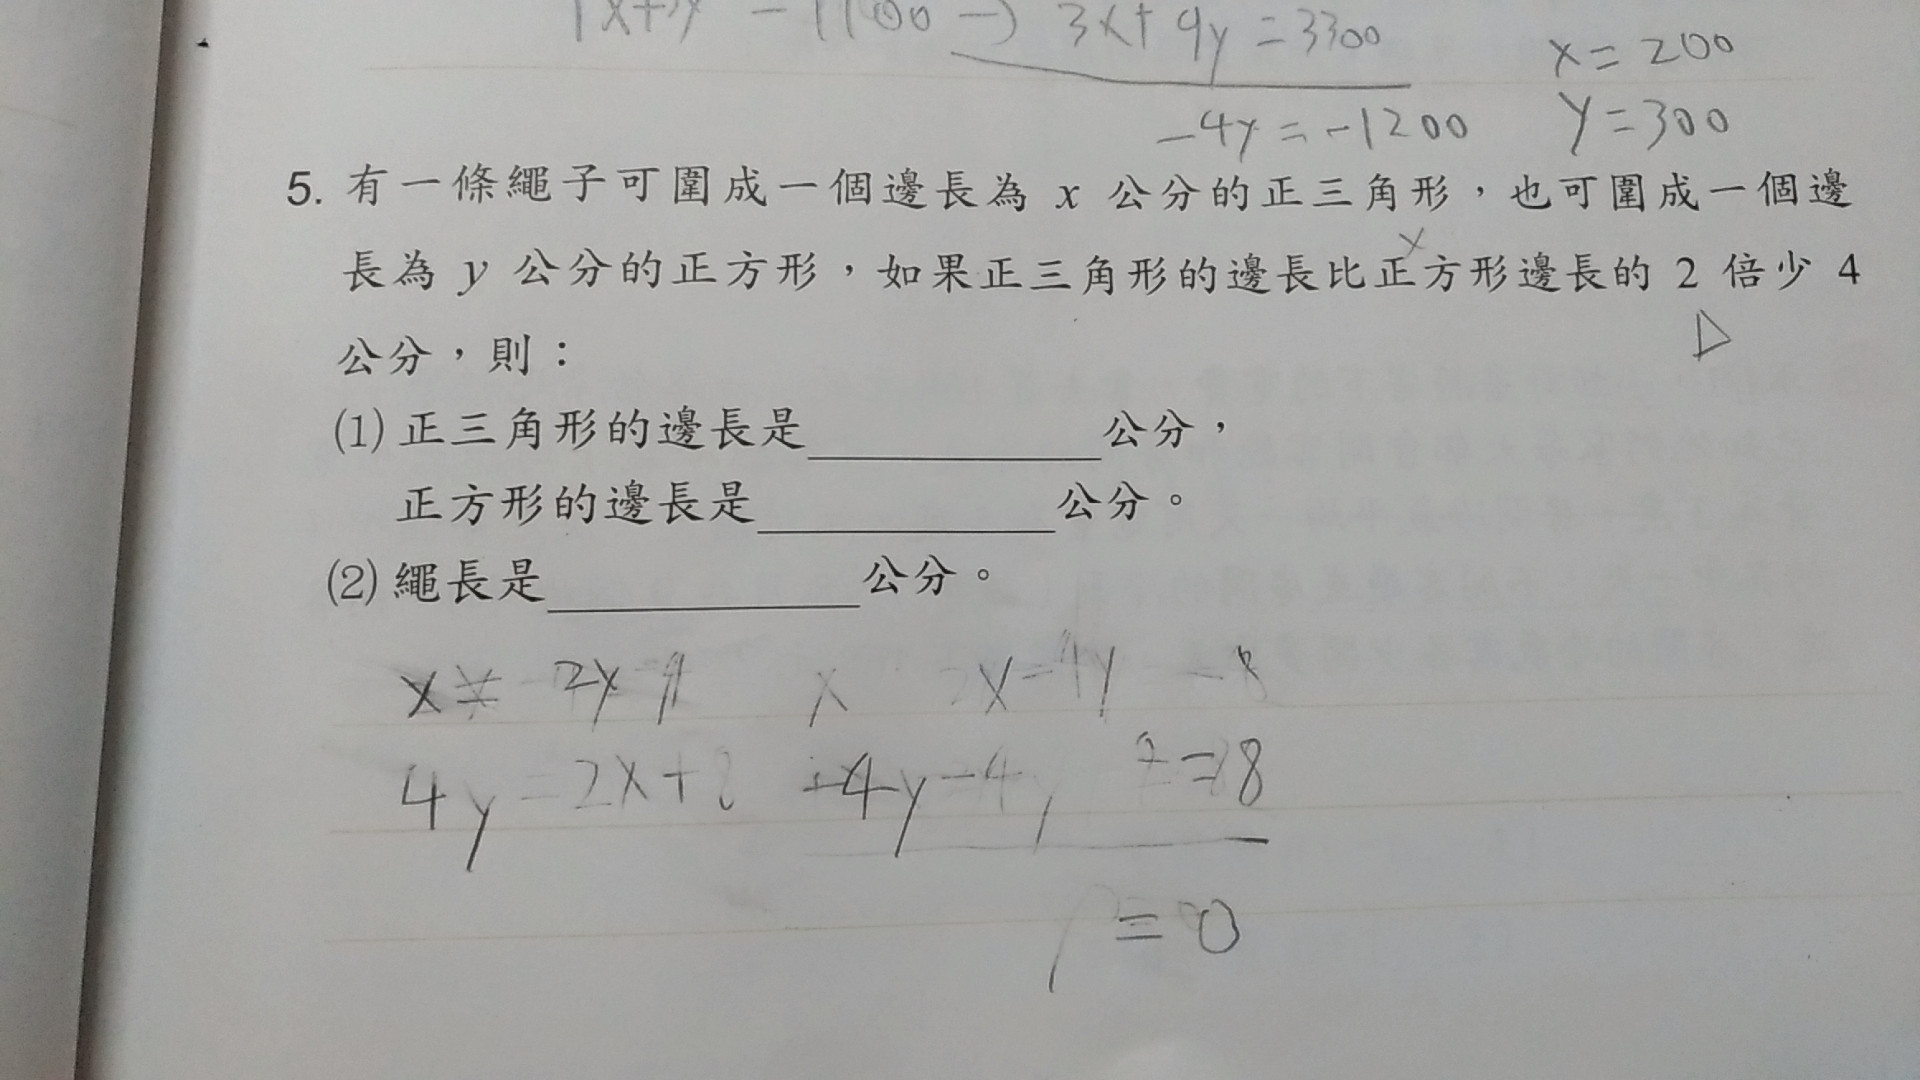 3x+4y=3300
x=200
-4y=-1200
y=300
5. 有一條繩子可圍成一個邊長為 x 公分的正三角形，也可圍成一個邊
長為 y 公分的正方形，如果正三角形的邊長比正方形邊長的 2 倍少 4
公分，則：
(1) 正三角形的邊長是__________公分，
正方形的邊長是__________公分。
(2) 繩長是__________公分。
4y=2x+8
=0